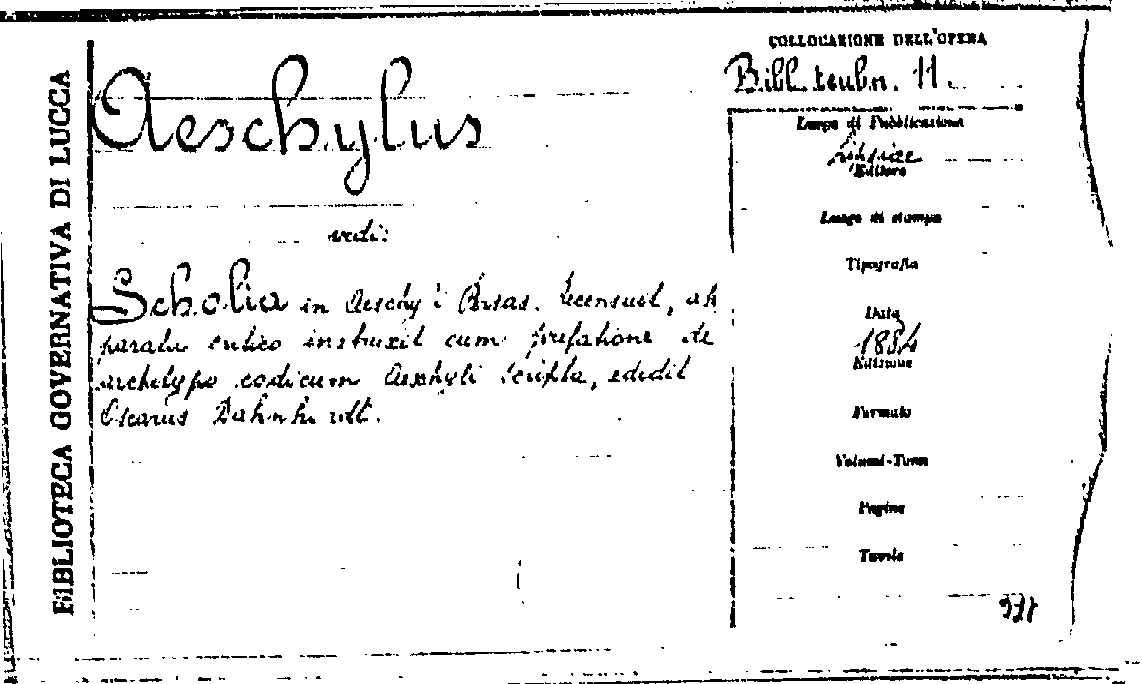 BIBLIOTECA GOVERNATIVA DI LUCCA
Aeschylus
vedi:
Scholia in Aeschyli Persas. Recensuit, ap
paratu critico instruxit cum prefatione de
archetypo codicum Aeschyli scripta, edidit
Oscarus Dähnhardt.
COLLOCAZIONE DELL'OPERA
Bibl. teubn. 11.
Luogo di Pubblicazione
Lipsiae
Editore
Luogo di stampa
Tipografia
Data
1894
Edizione
Formato
Volumi-Tomi
Pagine
Tavole